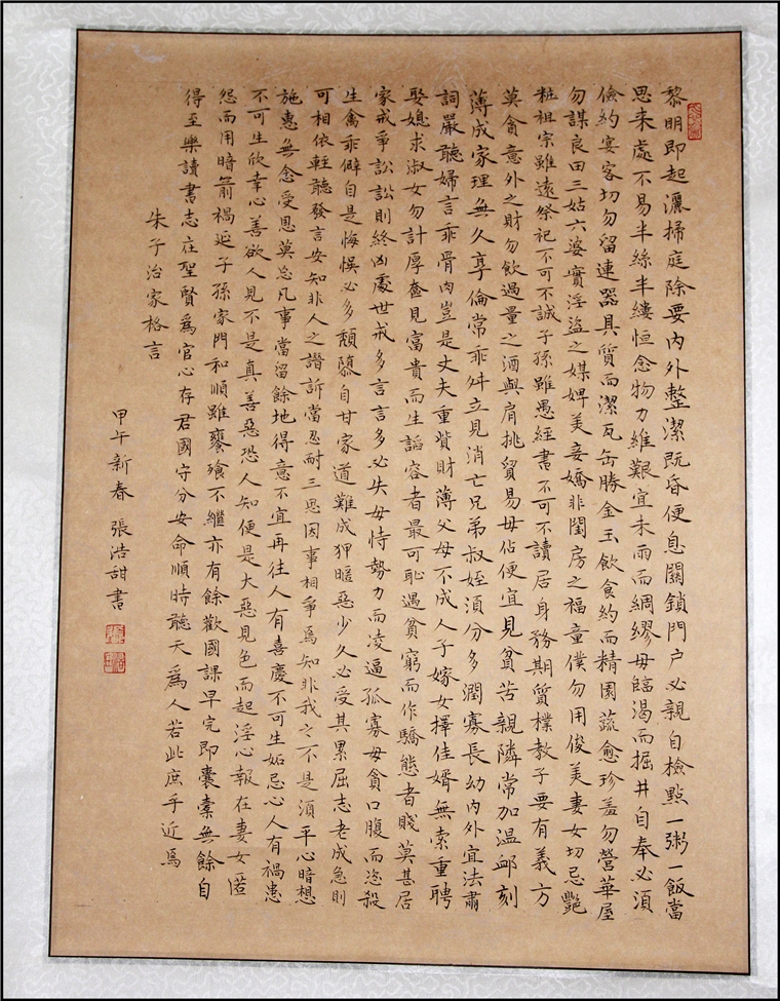 黎明即起灑掃庭除要内外整潔既昏便息關鎖門户必親自檢點一粥一飯當
思来處不易半絲半縷恒念物力維艱宜未雨而綢繆毋臨渴而掘井自奉必須
儉約宴客切勿留連器具質而潔瓦缶勝金玉飲食約而精園蔬愈珍羞勿營華屋
勿謀良田三姑六婆實淫盜之媒婢美妾嬌非閨房之福童僕勿用俊美妻女切忌艷
粧祖宗雖遠祭祀不可不誠子孫雖愚經書不可不讀居身務期質樸教子要有義方
莫貪意外之財勿飲過量之酒與肩挑貿易毋佔便宜見貧苦親隣常加温卹刻
薄成家理無久享倫常乖舛立見消亡兄弟叔姪須分多潤寡長幼内外宜法肅
詞嚴聽婦言乖骨肉豈是丈夫重貲財薄父母不成人子嫁女擇佳婿無索重聘
娶媳求淑女勿計厚奩見富貴而生諂容者最可恥遇貧窮而作驕態者賤莫甚居
家戒爭訟訟則終凶處世戒多言言多必失毋恃勢力而凌逼孤寡毋貪口腹而恣殺
生禽乖僻自是悔悞必多頽隳自甘家道難成狎暱惡少久必受其累屈志老成急則
可相依輕聽發言安知非人之譖訴當忍耐三思因事相爭焉知非我之不是須平心暗想
施惠無念受恩莫忘凡事當留餘地得意不宜再往人有喜慶不可生妬忌心人有禍患
不可生欣幸心善欲人見不是真善惡恐人知便是大惡見色而起淫心報在妻女匿
怨而用暗箭禍延子孫家門和順雖饔飧不繼亦有餘歡國課早完即囊橐無餘自
得至樂讀書志在聖賢爲官心存君國守分安命順時聽天爲人若此庶乎近焉
朱子治家格言
甲午新春張浩甜書